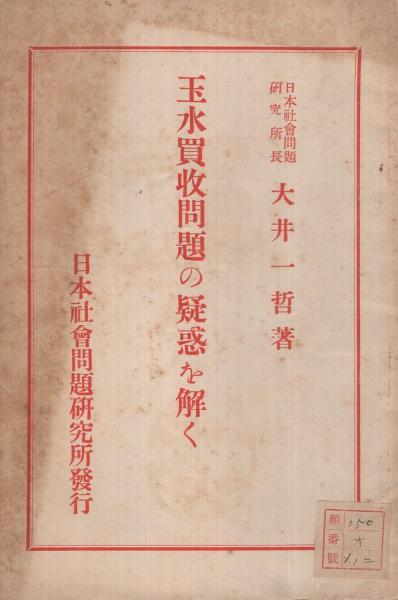 日本社會問題
硏究所長
大井一哲著
玉水買收問題の疑惑を解く
日本社會問題硏究所發行
類番號
150
オ